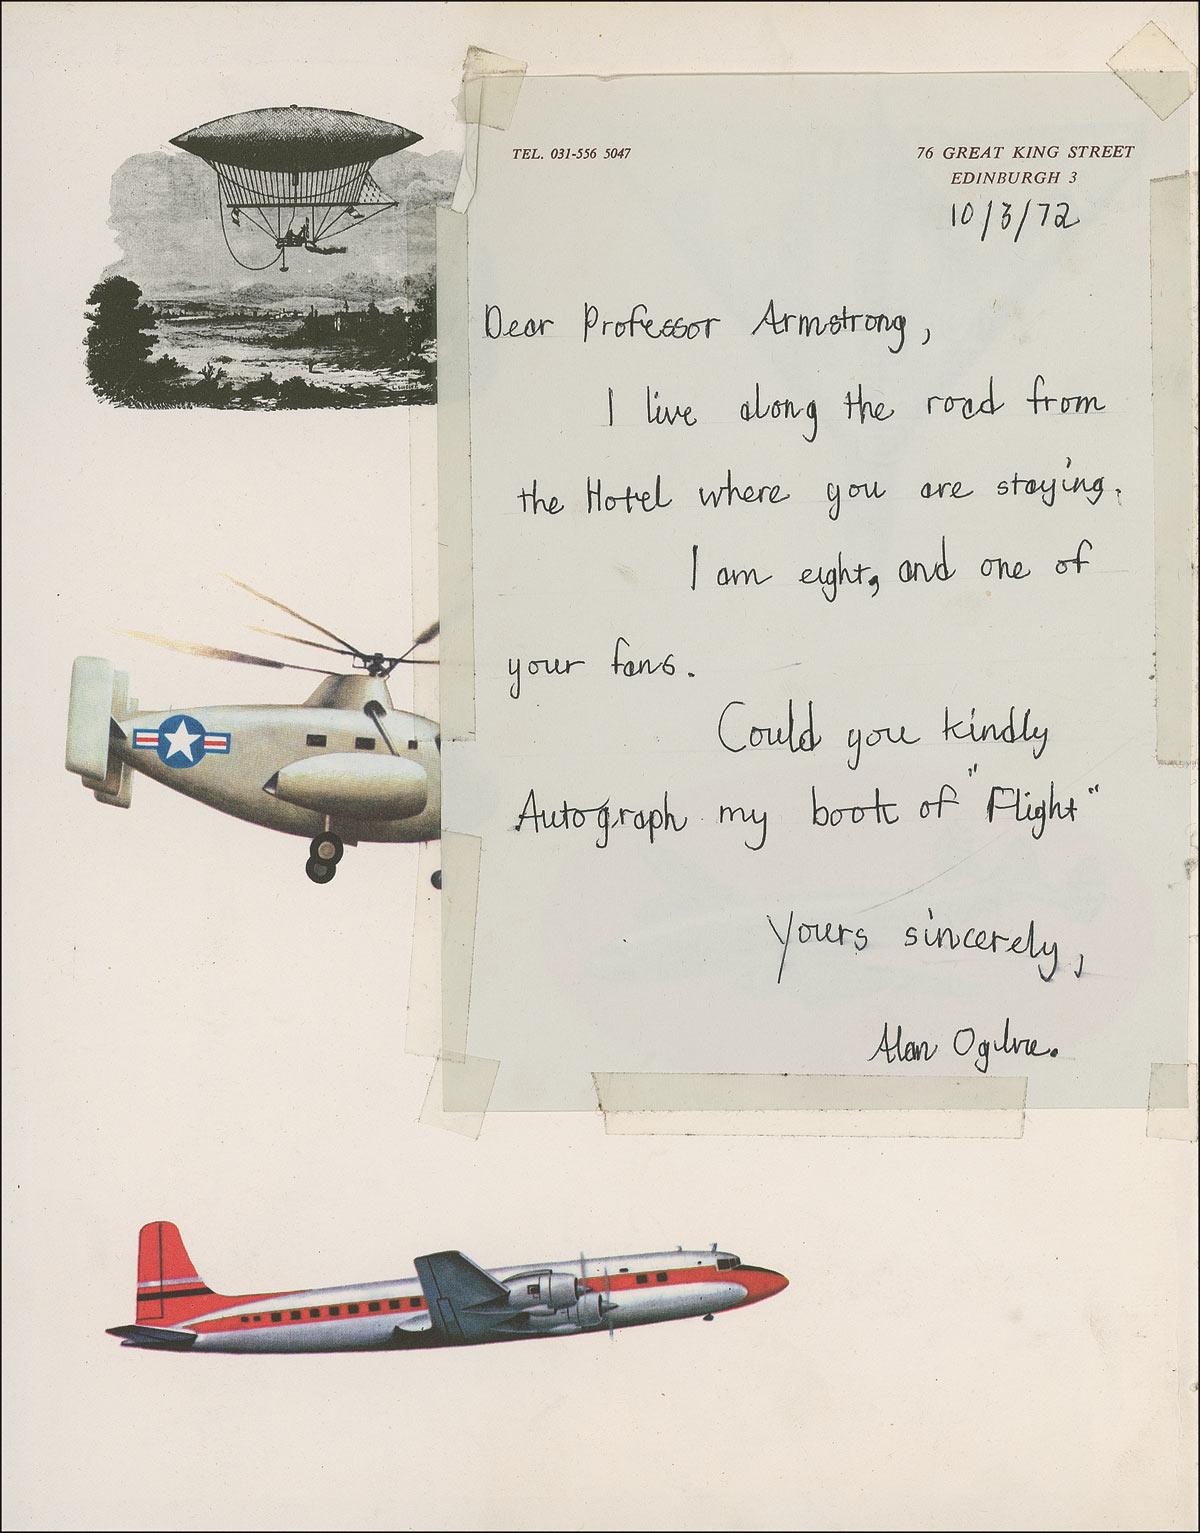 TEL. 031-556 5047
76 GREAT KING STREET
EDINBURGH 3
10/3/72
Dear Professor Armstrong,
I live along the road from
the Hotel where you are staying.
I am eight, and one of
your fans.
Could you kindly
Autograph my book of "Flight"
Yours sincerely,
Alan Ogilvie.